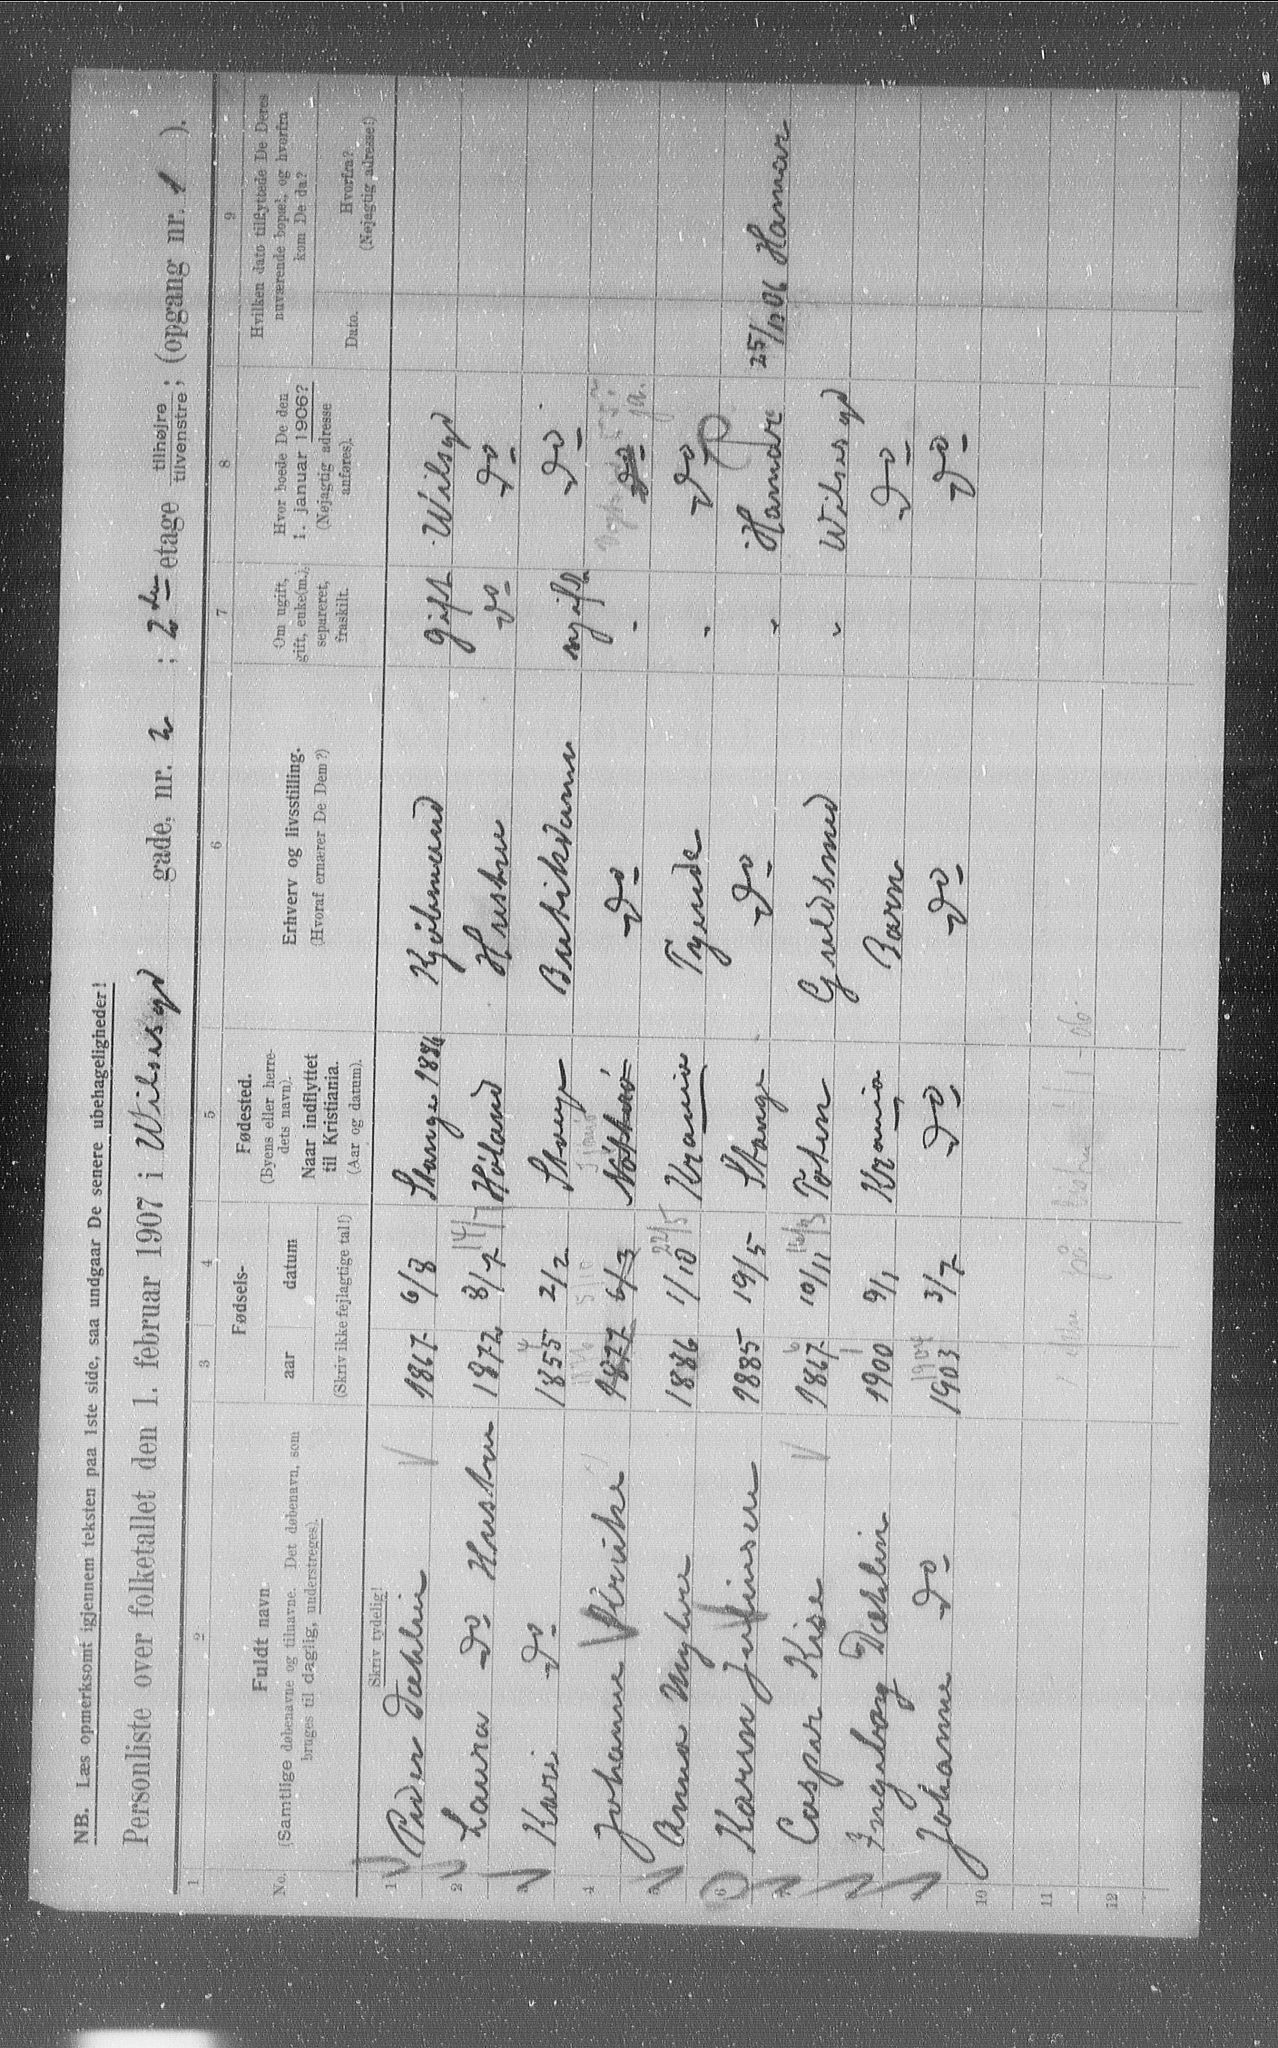 NB. Læs opmerksomt igjennem teksten paa 1ste side, saa undgaar De senere ubehageligheder!
Personliste over folketallet den 1. februar 1907 i Wilsesgd gade, nr. 2 ; 2den etage tilhøjre tilvenstre; (opgang nr. 1 ).
1 2 3 4 5 6 7 8 9
No. Fuldt navn (Samtlige døbenavne og tilnavne. Det døbenavn, som bruges til daglig, understreges). Fødsels- aar datum Fødested. (Byens eller herredets navn). Naar indflyttet til Kristiania. (Aar og datum). Erhverv og livsstilling. (Hvoraf ernærer De Dem?) Om ugift, gift, enke(m.), separeret, fraskilt. Hvor boede De den 1. januar 1906? (Nøjagtig adresse anføres). Hvilken dato tilflyttede De Deres nuværende bopæl, og hvorfra kom De da?
Skriv tydelig! (Skriv ikke fejlagtige tal!) Dato. Hvorfra? (Nøjagtig adresse!)
1 Peder Dæhlin 1867 6/8 Stange 1886 Kjøbmand gift Wilsesgd
2 Laura do Hustru 1872 8/7 14/7 Høland Hustru do do
3 Kari do 1855 2/2 Stange Butikdame ugift do
4 Johanne 1877 6/3 5/10 do - do ja.
5 Anna Myhre 1886 1/10 22/5 Krania Tyende - do
6 Karen Juliussen 1885 19/5 Stange do " Hamar 25/12 06 Hamar
7 Caspar Kise 1867 6 10/11 Toten Guldsmed " Wilsesgd
8 Ingeborg Dæhlin 1900 1 9/1 Krania Barn do
9 Johanne do 1903 1904 3/7 do do do
10
11
12